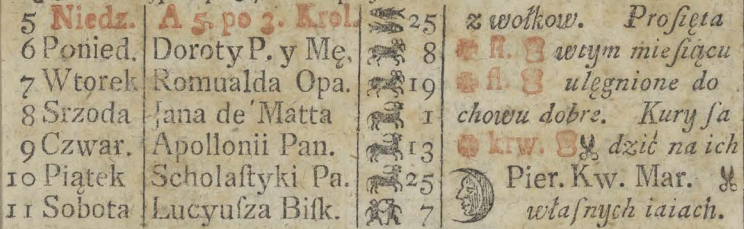 5 Niedz. A 5. po 3. Krol. 25 z wołkow. Proſięta
6 Ponied. Doroty P. y Mę. 8 ſł. wtym mieſiącu
7 Wtorek Romualda Opa. 19 ſł. ulęgnione do
8 Srzoda Jana de Matta 1 chowu dobre. Kury ſa
9 Czwar. Apollonii Pan. 13 krw. dzić na ich
10 Piątek Scholaſtyki Pa. 25 Pier. Kw. Mar.
11 Sobota Lucyuſza Biſk. 7 właſnych iaiach.